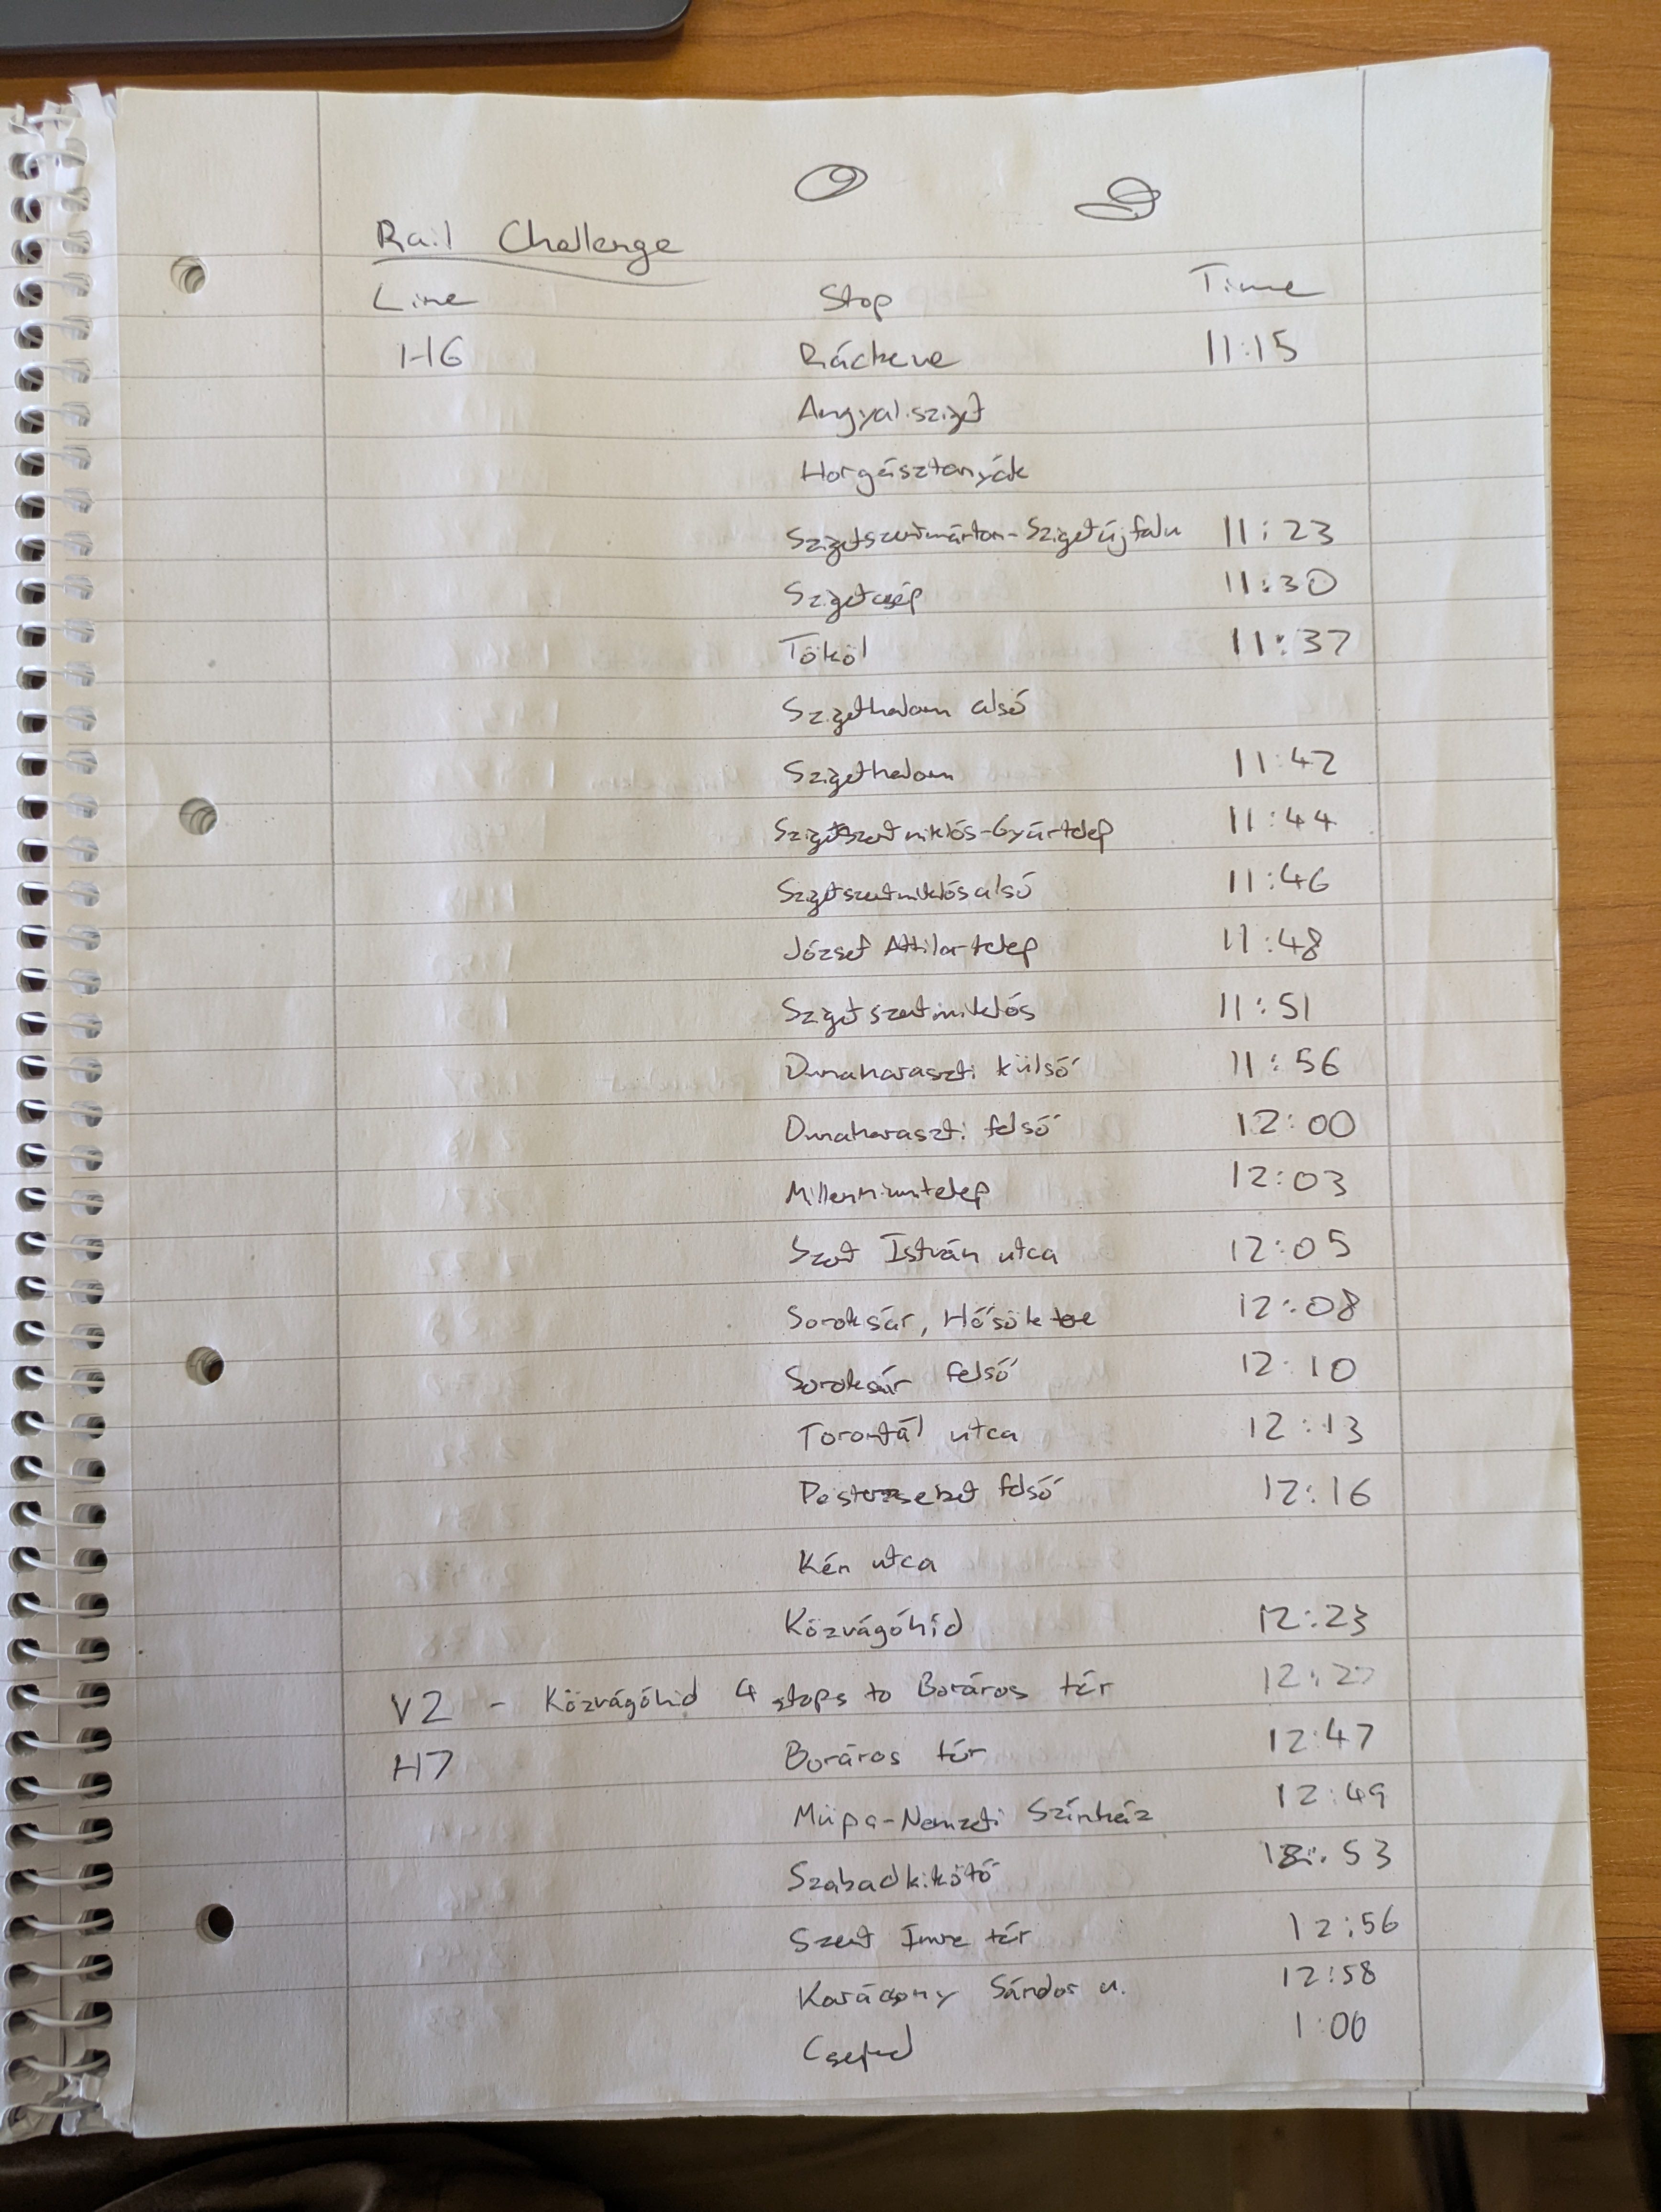 Rail Challenge
Line Stop Time
H6 Ráckeve 11:15
Angyalisziget
Horgásztanyák
Szigetszentmárton-Szigetújfalu 11:23
Szigetcsép 11:30
Tököl 11:37
Szigethalom alsó
Szigethalom 11:42
Szigetszentmiklós-Gyártelep 11:44
Szigetszentmiklós alsó 11:46
József Attila-telep 11:48
Szigetszentmiklós 11:51
Dunaharaszti külső 11:56
Dunaharaszti felső 12:00
Millenniumtelep 12:03
Szent István utca 12:05
Soroksár, Hősök tere 12:08
Soroksár felső 12:10
Torontál utca 12:13
Pesterzsébet felső 12:16
Kén utca
Közvágóhíd 12:23
V2 - Közvágóhid 4 stops to Boráros tér 12:27
H7 Boráros tér 12:47
Müpa-Nemzeti Színház 12:49
Szabadkikötő 12:53
Szent Imre tér 12:56
Karácsony Sándor u. 12:58
Csepel 1:00